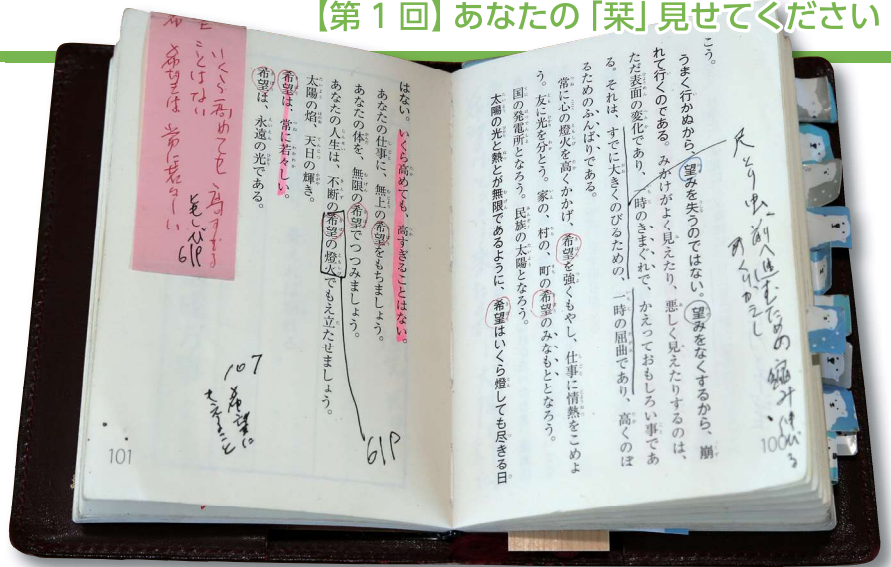 【第1回】あなたの「栞」見せてください
こう。
うまく行かぬから、望みを失うのではない。望みをなくするから、崩
れて行くのである。みかけがよく見えたり、悪しく見えたりするのは、
ただ表面の変化であり、一時のきまぐれで、かえっておもしろい事であ
る。それは、すでに大きくのびるための、一時の屈曲であり、高くのぼ
るためのふんばりである。
常に心の燈火を高くかかげ、希望を強くもやし、仕事に情熱をこめよ
う。友に光を分とう。家の、村の、町の希望のみなもととなろう。
国の発電所となろう。民族の太陽となろう。
太陽の光と熱とが無限であるように、希望はいくら燈しても尽きる日
尺とり虫
前へ進むための縮み伸びる
100
はない。いくら高めても、高すぎることはない。
あなたの仕事に、無上の希望をもちましょう。
あなたの体を、無限の希望でつつみましょう。
あなたの人生は、不断の希望の燈火でもえ立たせましょう。
太陽の焰、天日の輝き。
希望は、常に若々しい。
希望は、永遠の光である。
61P
107
希望に
101
いくら高めても高すぎる
ことはない
希望は常に若々しい
61P